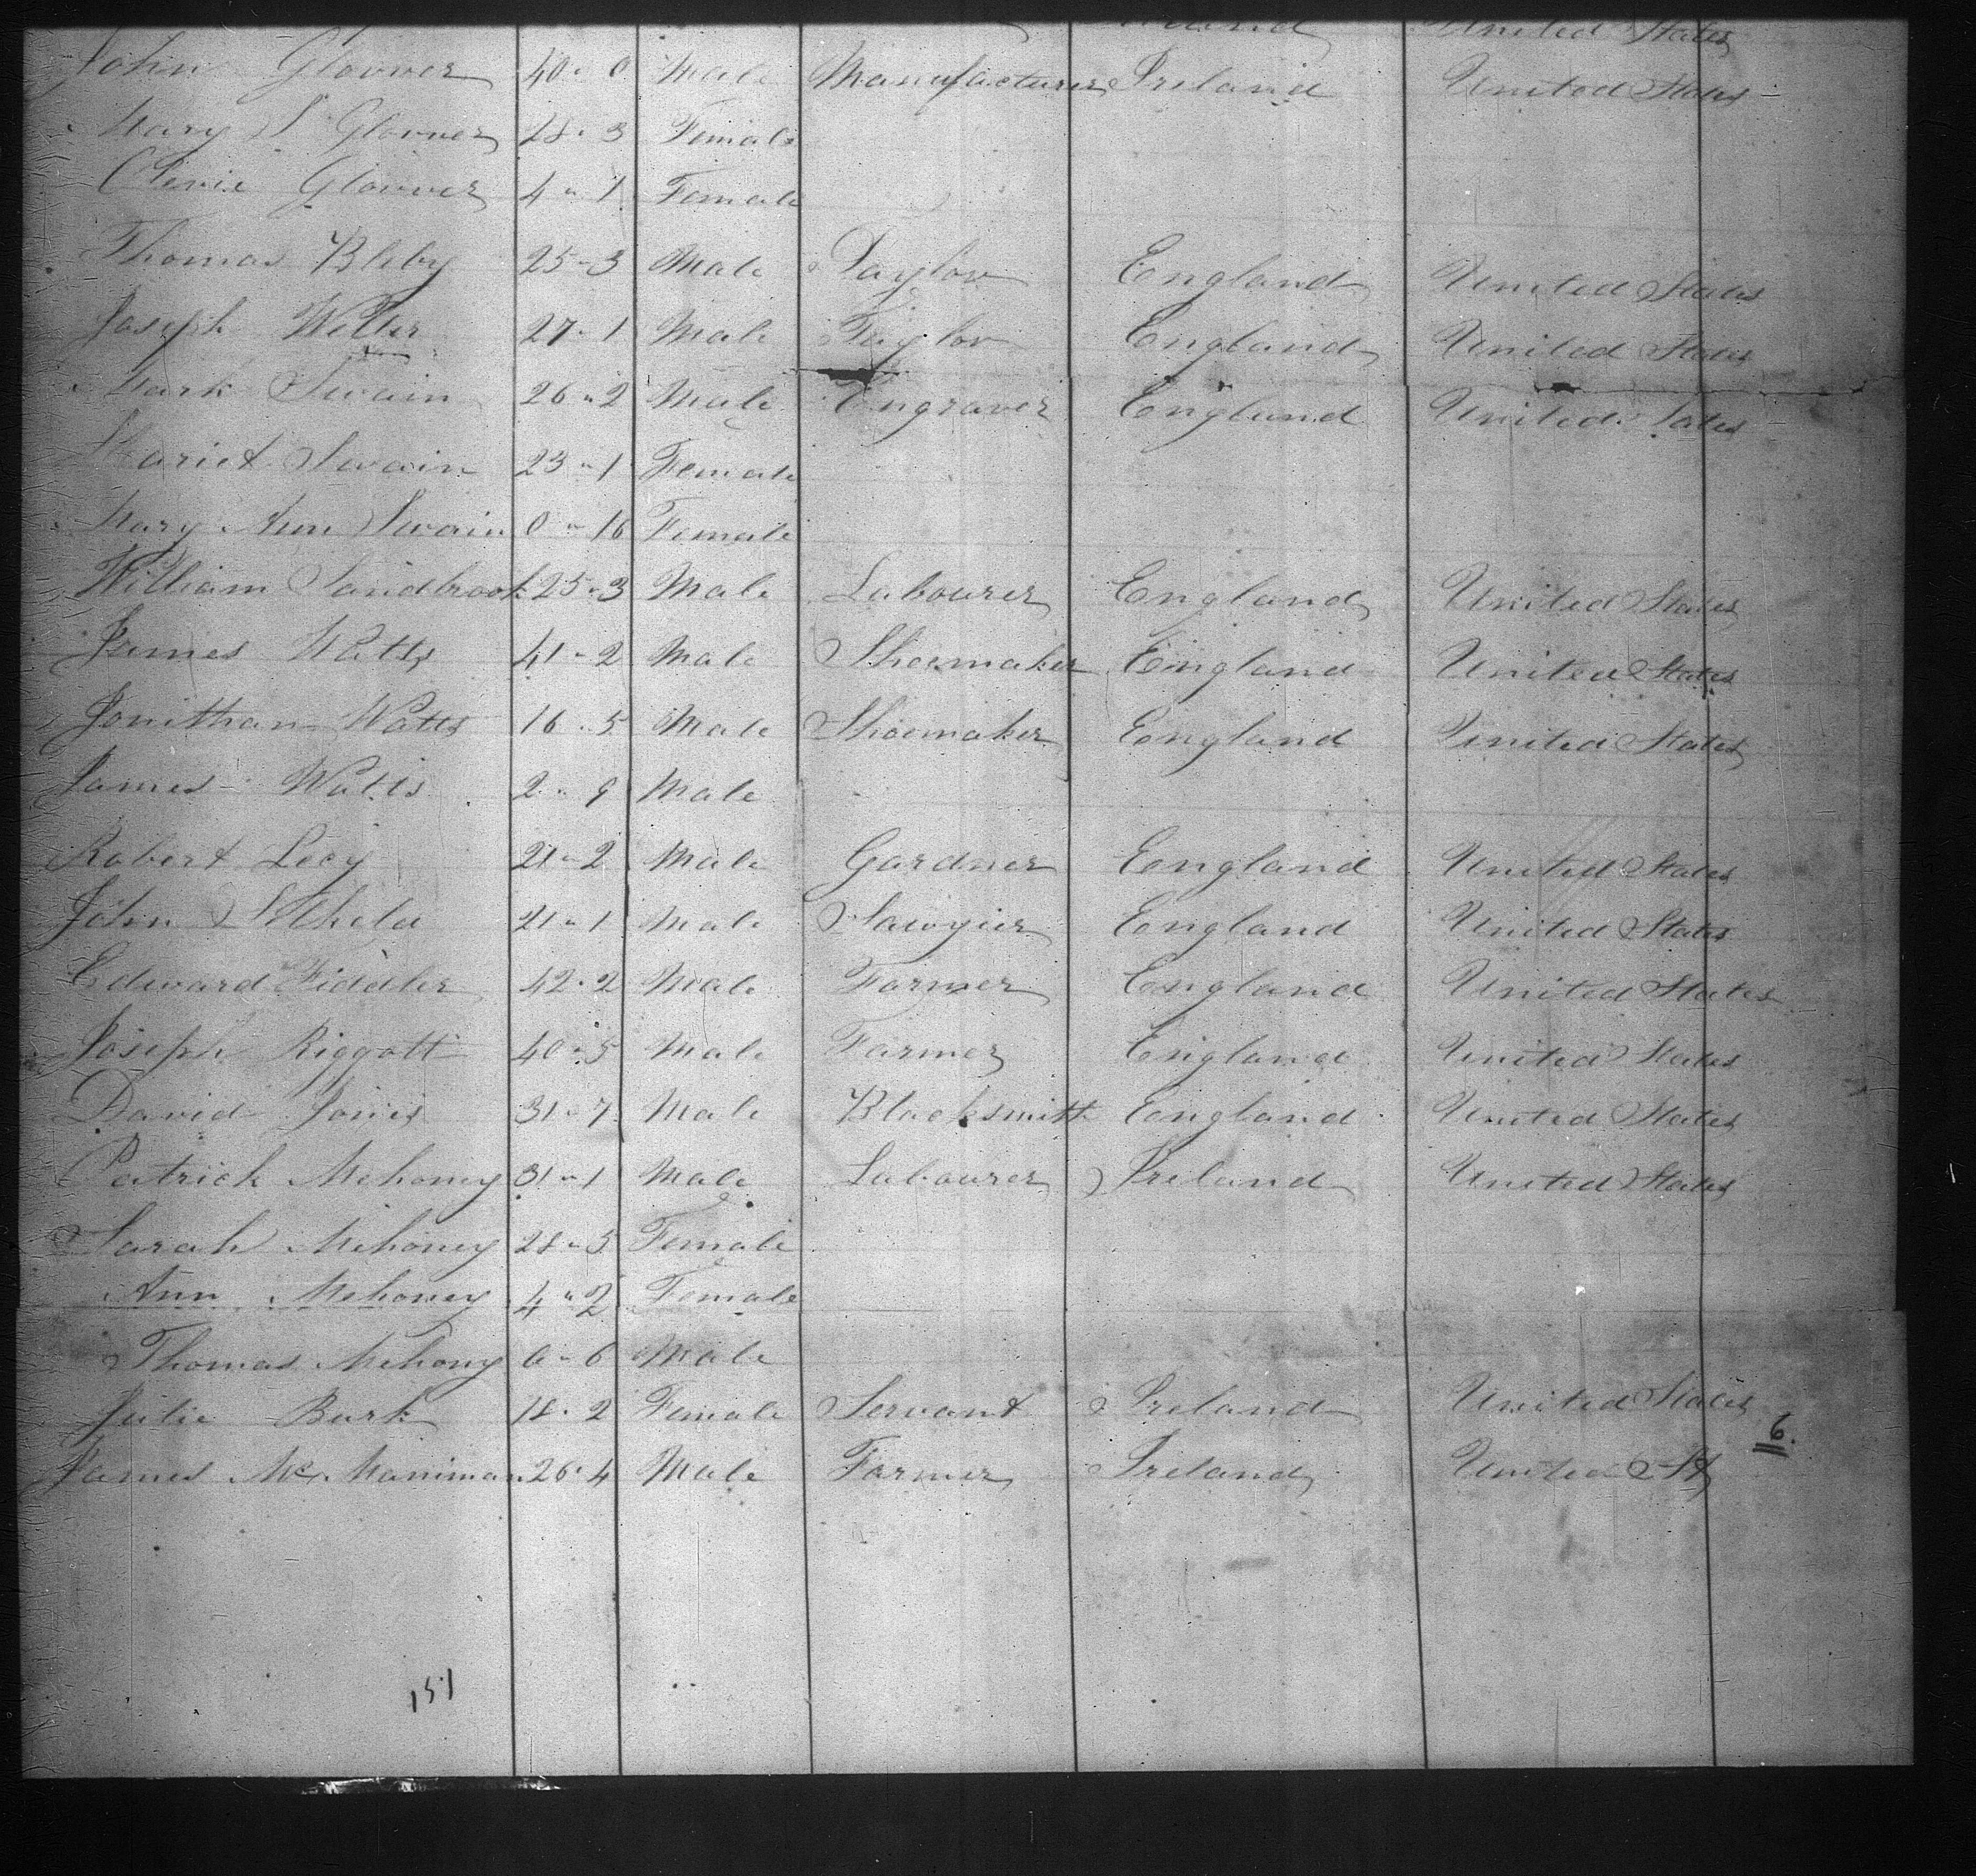 United States
John Glovver 40 " 0 Male Manufacturer Ireland United States
Mary S Glovver 28 " 3 Female
Glovver 4 " 1 Female
Thomas Bleby 25 " 3 Male Taylor England United States
Joseph Weller 27 " 1 Male Taylor England United States
Mark Swain 26 " 2 Male Engraver England United States
Hariet Swain 23 " 1 Female
Mary Ann Swain 0 " 16 Female
William Sandbrook 25 " 3 Male Labourer England United States
James Watts 41 " 2 Male Shoemaker England United States
Jonithan Watts 16 " 5 Male Shoemaker England United States
James Watts 2 " 9 Male
Robert Lecy 21 " 2 Male Gardner England United States
John 21 " 1 Male Sawyier England United States
Edward Fiddler 42 " 2 Male Farmer England United States
Joseph Riggott 40 " 5 Male Farmer England United States
David Jones 31 " 7 Male Blacksmith England United States
Patrick Mehoney 31 " 1 Male Labourer Ireland United States
Sarah Mehoney 28 " 5 Female
Ann Mehoney 4 " 2 Female
Thomas Mehony 0 " 6 Male
Julie Burk 18 " 2 Female Servant Ireland United States
6
James Mc Manniman 26 " 4 Male Farmer Ireland United St
151